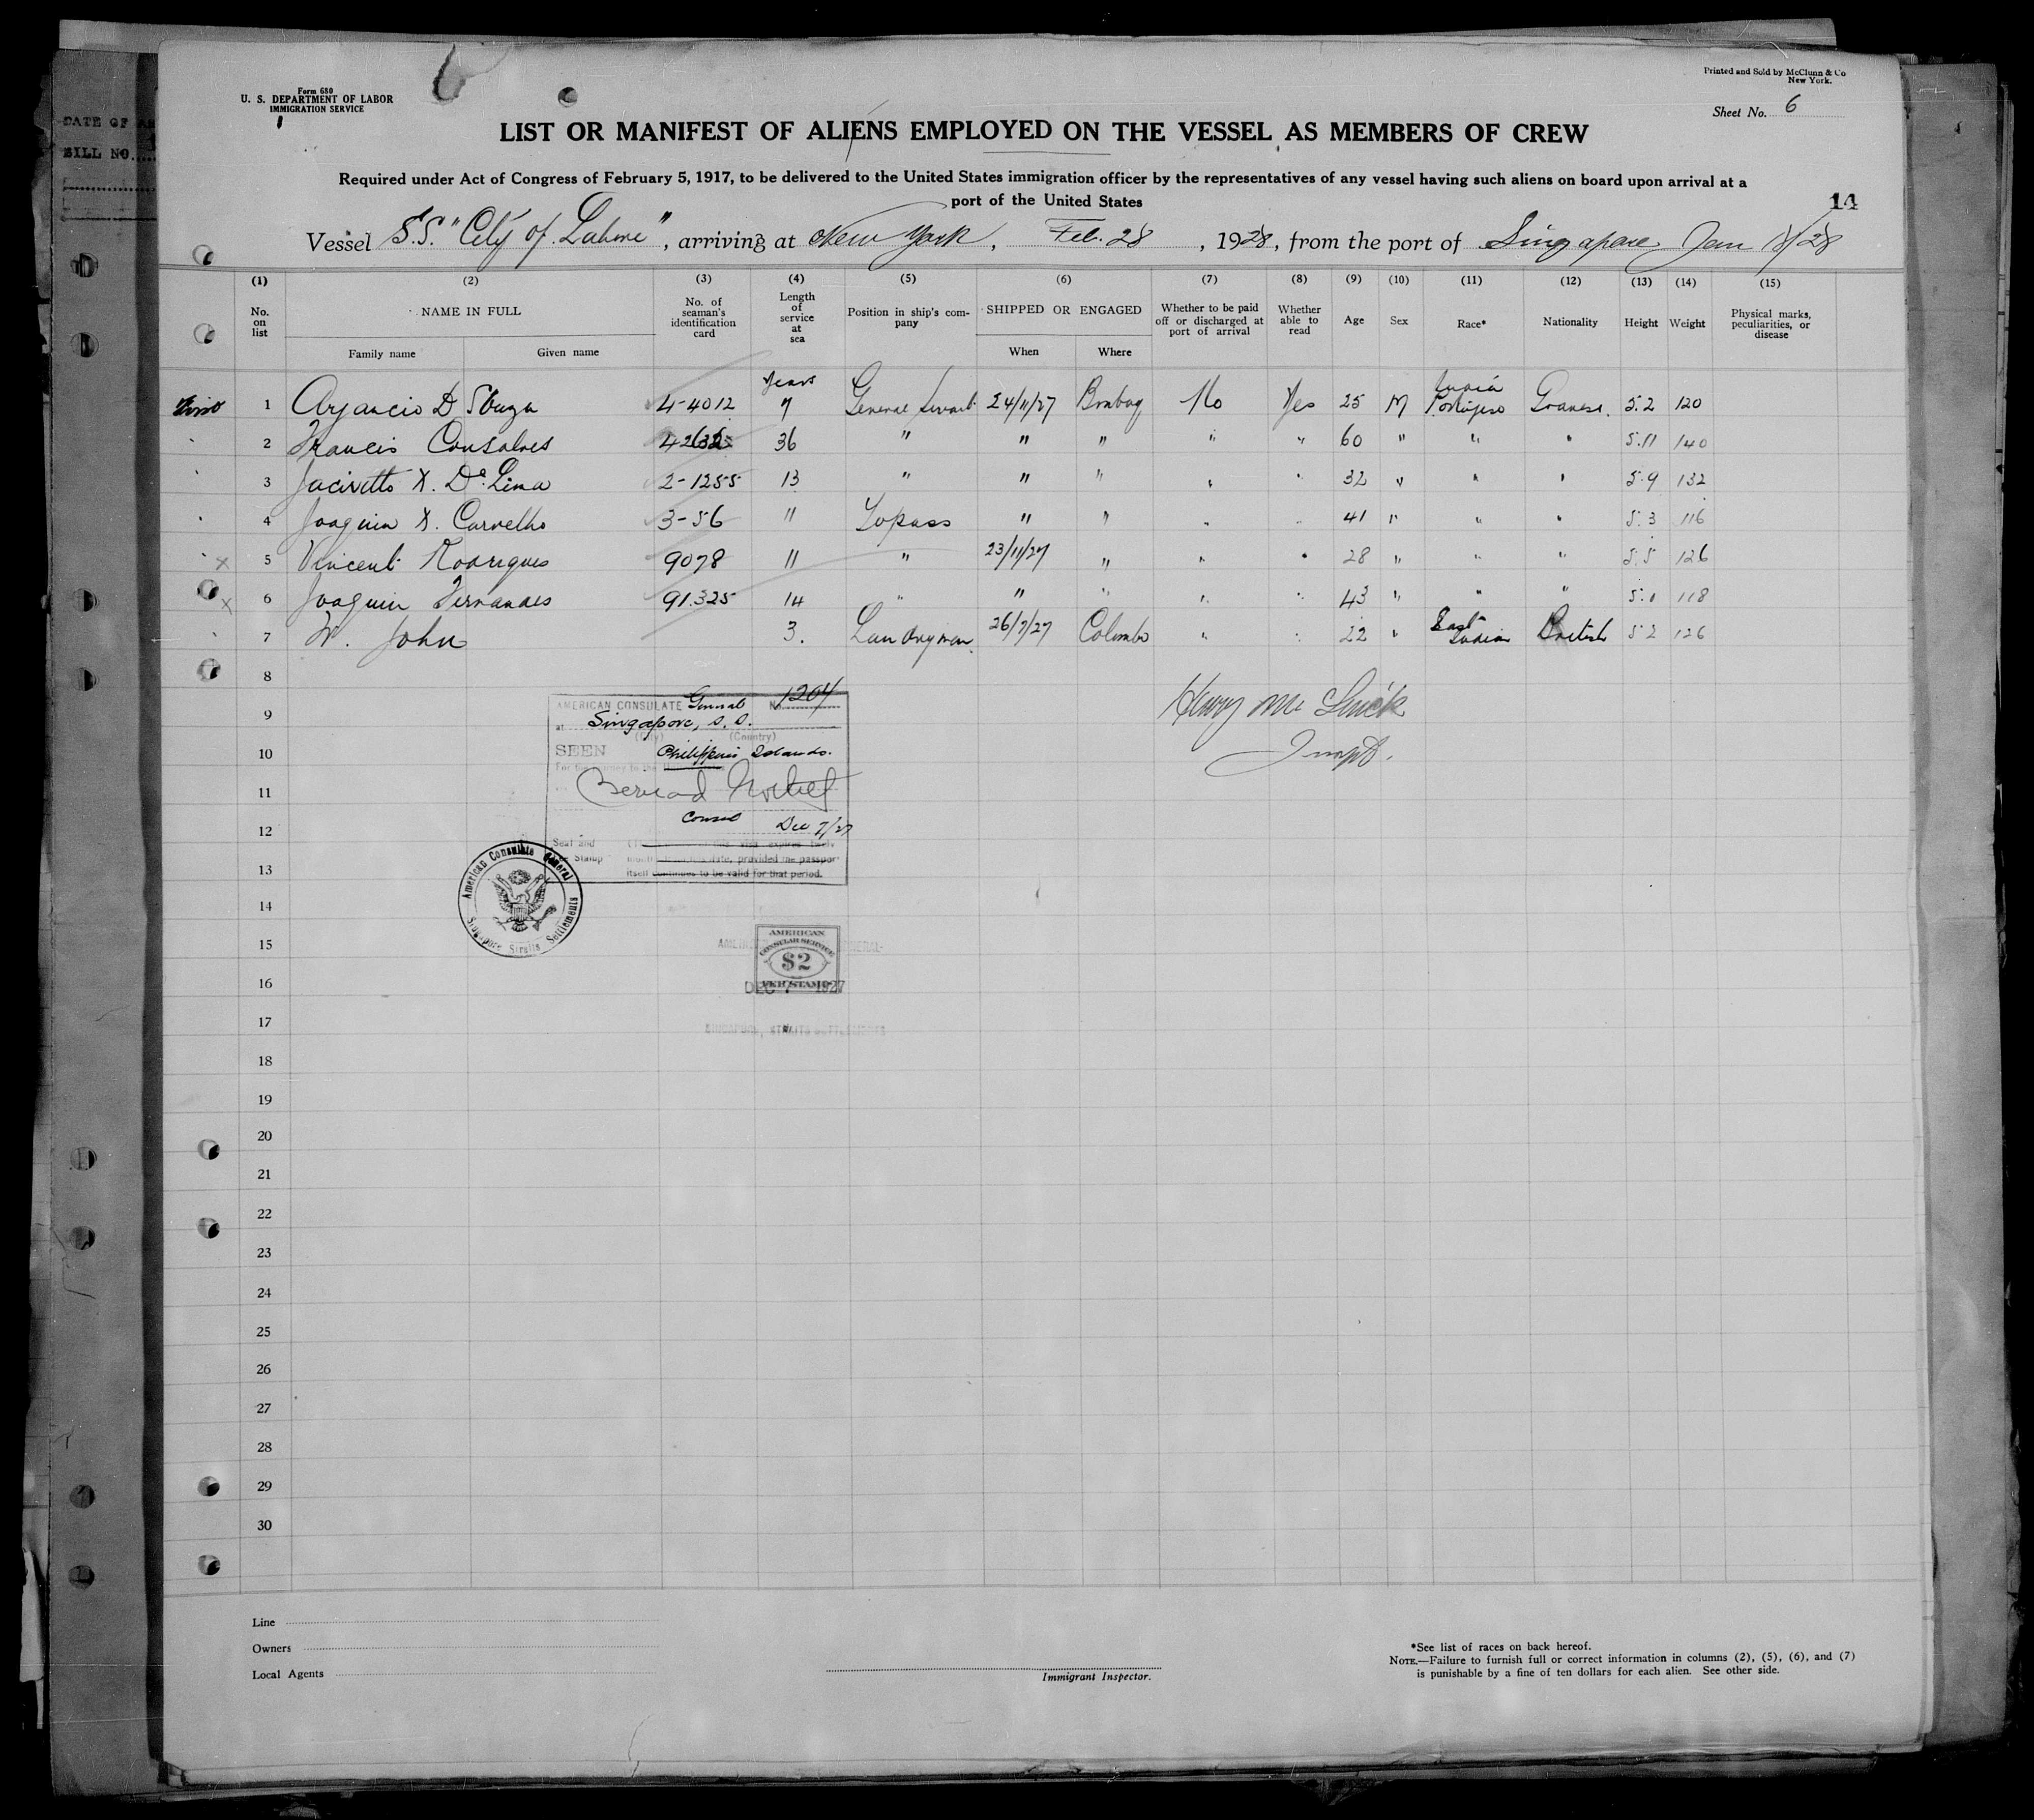 DATE OF
BILL NO.
Form 680
U. S. DEPARTMENT OF LABOR
IMMIGRATION SERVICE
Printed and Sold by McClunn & Co
New York.
Sheet No. 6
LIST OR MANIFEST OF ALIENS EMPLOYED ON THE VESSEL AS MEMBERS OF CREW
Required under Act of Congress of February 5, 1917, to be delivered to the United States immigration officer by the representatives of any vessel having such aliens on board upon arrival at a
port of the United States
14
Vessel S.S. "City of Lahore", arriving at New York, Feb. 28, 1928, from the port of Singapore Jan /28
(1) (2) (3) (4) (5) (6) (7) (8) (9) (10) (11) (12) (13) (14) (15)
No. on list NAME IN FULL No. of seaman's identification card Length of service at sea Position in ship's company SHIPPED OR ENGAGED Whether to be paid off or discharged at port of arrival Whether able to read Age Sex Race* Nationality Height Weight Physical marks, peculiarities, or disease
Family name Given name When Where
years
1 D Souza 4-4012 7 General Servant 24/11/27 Bombay No Yes 25 M India Portugese Goanese. 5.2 120
2 Francis Consalves 36 " " " " " 60 " " " 5.11 140
3 X. De Lima 2-1255 13 " " " " " 32 " " " 5.9 132
4 Joaquim X. Carvelho 3-56 11 Topass " " " " 41 " " " 5.3 116
5 Vincent Rodrigues 9078 11 " 23/11/27 " " " 28 " " " 5.5 126
6 Joaquim Fernandes 91.325 14 " " " " " 43 " " " 5.1 118
7 John 3. Laundryman 26/7/27 Colombo " " 22 " East Indian British 5 2 126
8
9
10
11
12
13
14
15
16
17
18
19
20
21
22
23
24
25
26
27
28
29
30
AMERICAN CONSULATE General No. 1204
at Singapore, S.S.
(City) (Country)
SEEN Philippine Islands.
For the journey to the
Bernard
Consul Dec 7/27
Seal and
Stamp
date, provided the passport
itself continues to be valid for that period.
American Consulate General
Singapore Straits Settlements
AMERICAN
CONSULAR SERVICE
$2
FEE STAMP
DEC 7 1927
SINGAPORE, STRAITS SETTLEMENTS
Henry
Line
Owners
Local Agents
Immigrant Inspector.
*See list of races on back hereof.
NOTE.—Failure to furnish full or correct information in columns (2), (5), (6), and (7)
is punishable by a fine of ten dollars for each alien. See other side.